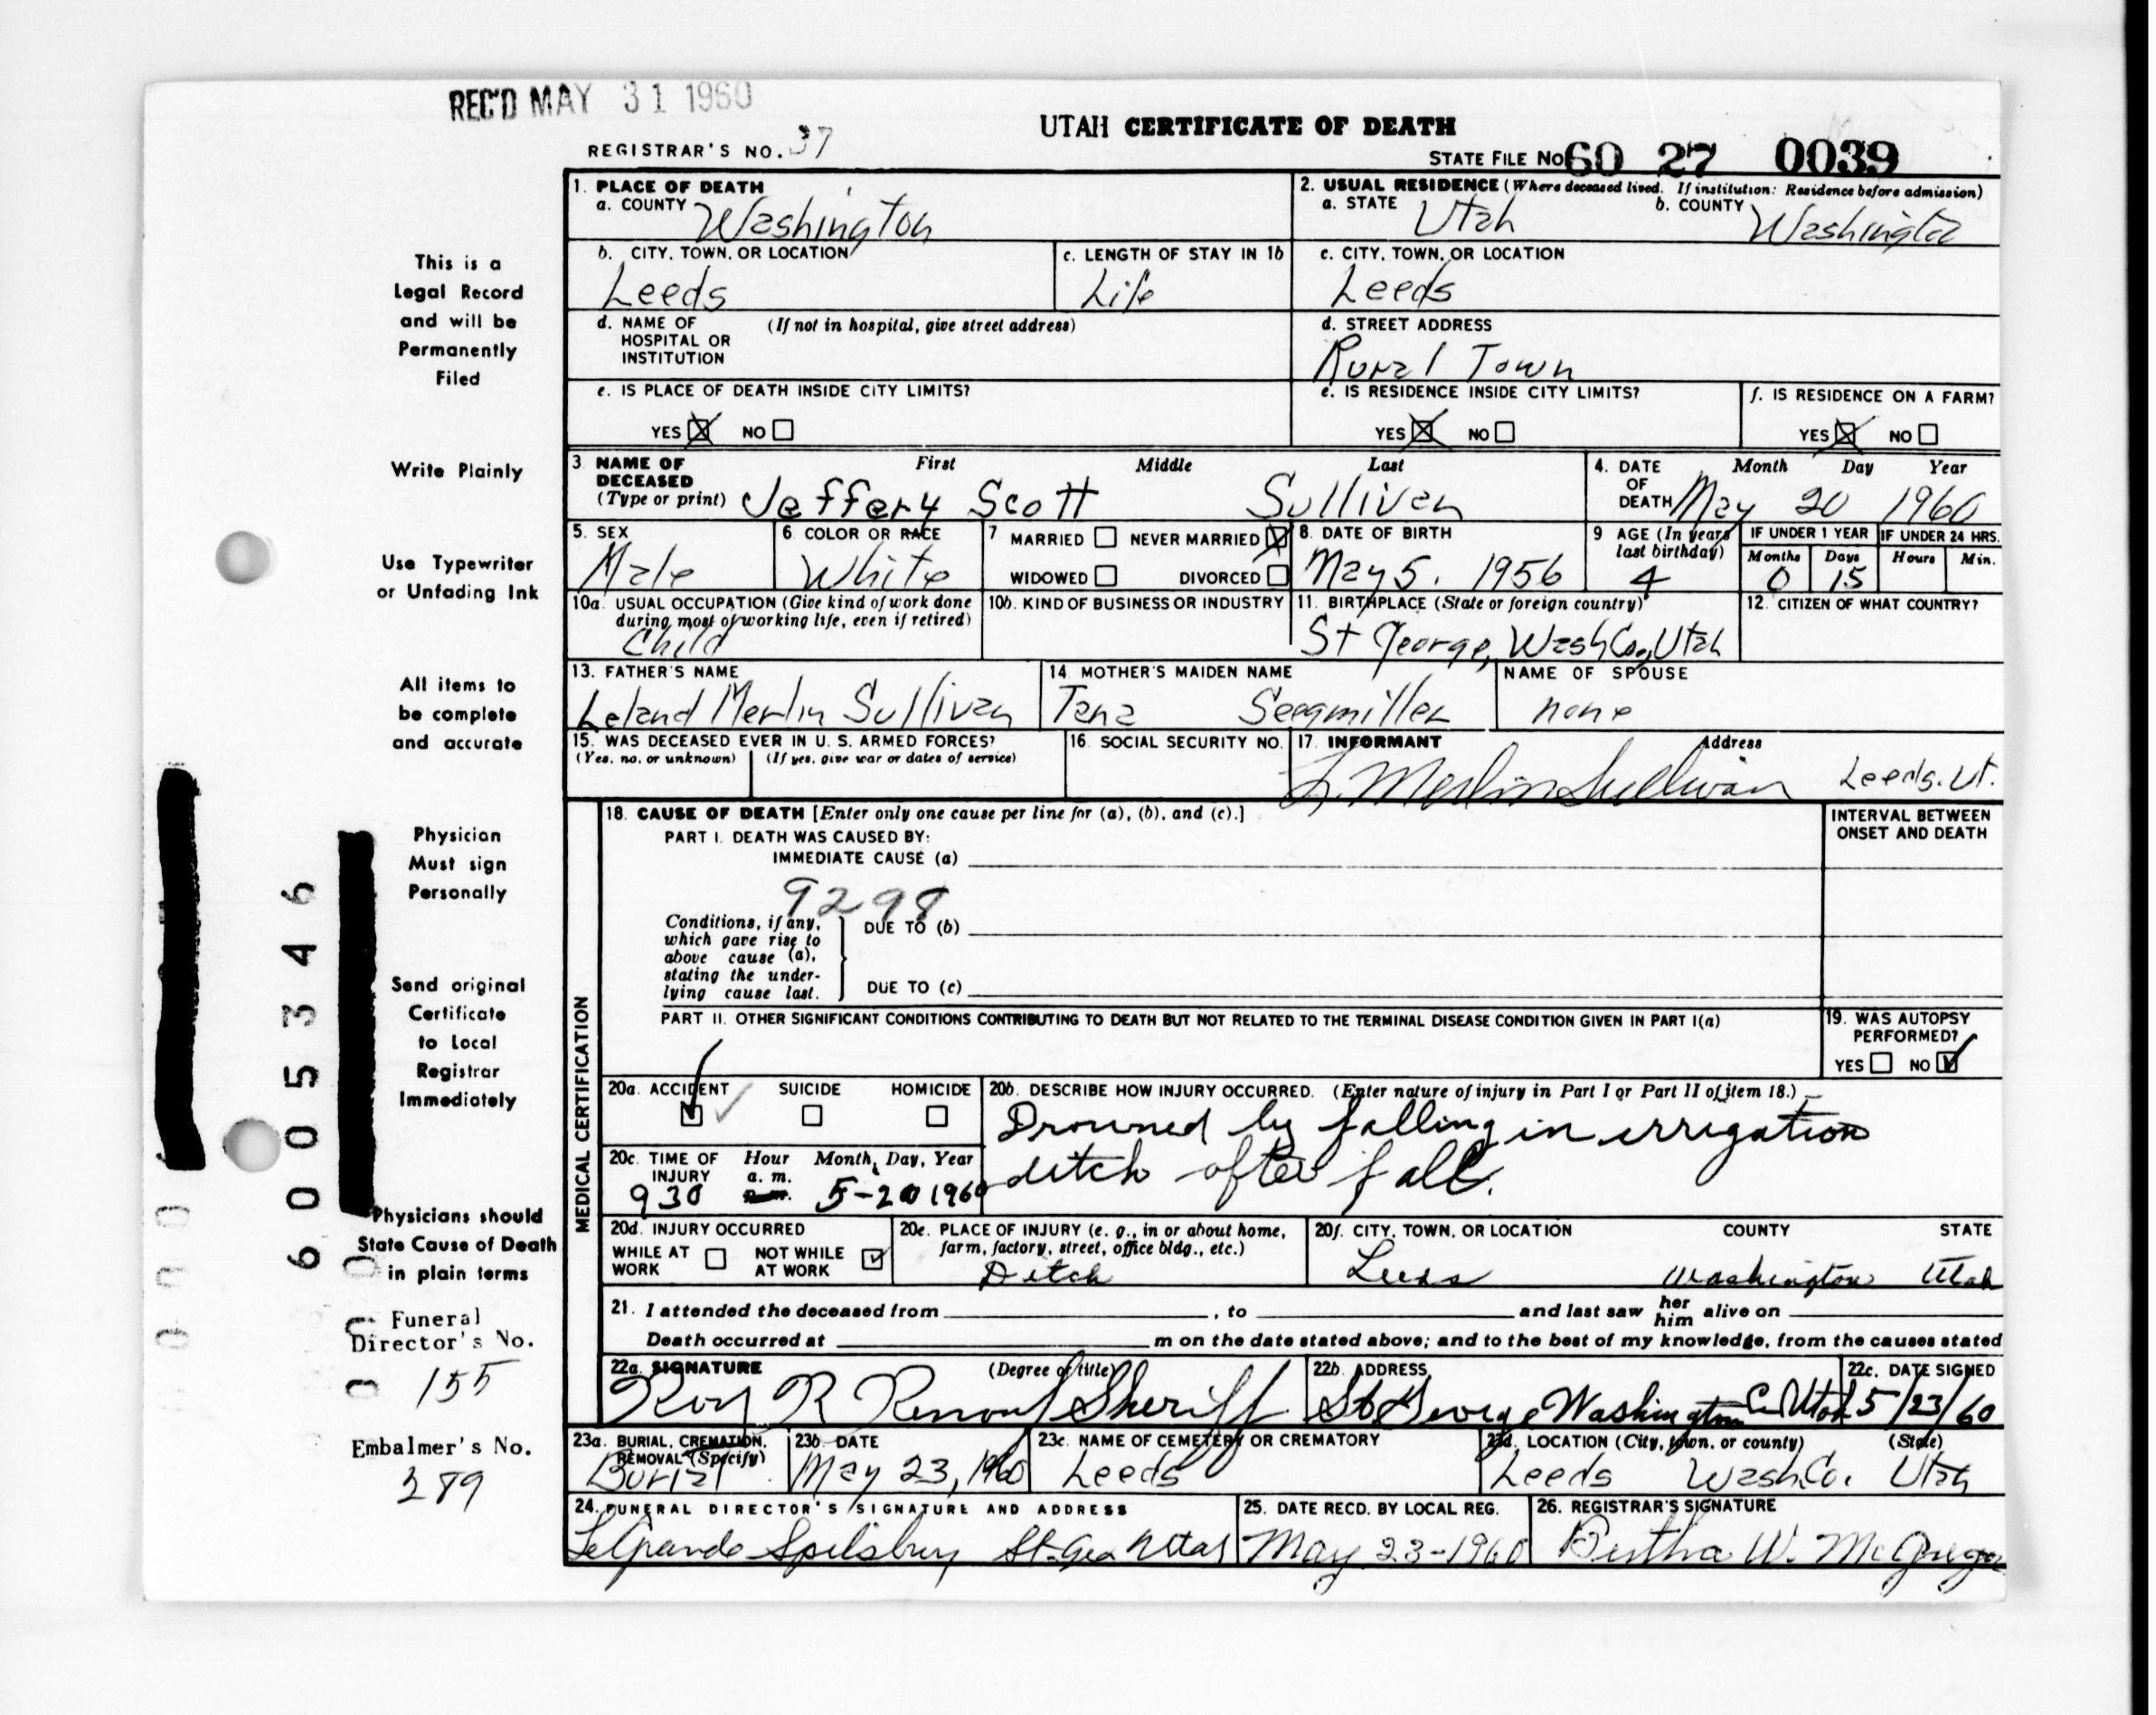 REC'D MAY 31 1960
UTAH CERTIFICATE OF DEATH
REGISTRAR'S NO. 37
STATE FILE No 60 27 0039
This is a
Legal Record
and will be
Permanently
Filed
Write Plainly
Use Typewriter
or Unfading Ink
All items to
be complete
and accurate
Physician
Must sign
Personally
Send original
Certificate
to Local
Registrar
Immediately
Physicians should
State Cause of Death
in plain terms
Funeral
Director's No.
155
Embalmer's No.
289
6005346
1. PLACE OF DEATH
a. COUNTY Washington
2. USUAL RESIDENCE (Where deceased lived. If institution: Residence before admission)
a. STATE Utah b. COUNTY Washington
b. CITY, TOWN, OR LOCATION Leeds
c. LENGTH OF STAY IN 1b Life
c. CITY, TOWN, OR LOCATION Leeds
d. NAME OF HOSPITAL OR INSTITUTION (If not in hospital, give street address)
d. STREET ADDRESS Rural Town
e. IS PLACE OF DEATH INSIDE CITY LIMITS?
YES NO
e. IS RESIDENCE INSIDE CITY LIMITS?
YES NO
f. IS RESIDENCE ON A FARM?
YES NO
3. NAME OF DECEASED (Type or print) First Middle Last
Jeffery Scott Sullivan
4. DATE OF DEATH Month Day Year
May 20 1960
5. SEX Male
6. COLOR OR RACE White
7 MARRIED NEVER MARRIED
WIDOWED DIVORCED
8. DATE OF BIRTH May 5. 1956
9 AGE (In years last birthday) 4
IF UNDER 1 YEAR Months 0 Days 15
IF UNDER 24 HRS. Hours Min.
10a. USUAL OCCUPATION (Give kind of work done during most of working life, even if retired) Child
10b. KIND OF BUSINESS OR INDUSTRY
11. BIRTHPLACE (State or foreign country) St George, Wash Co, Utah
12. CITIZEN OF WHAT COUNTRY?
13. FATHER'S NAME Leland Merlin Sullivan
14 MOTHER'S MAIDEN NAME Tana Seegmiller
NAME OF SPOUSE none
15. WAS DECEASED EVER IN U. S. ARMED FORCES?
(Yes, no, or unknown) (If yes, give war or dates of service)
16. SOCIAL SECURITY NO.
17. INFORMANT Address
L. Merlin Sullivan Leeds. Ut.
MEDICAL CERTIFICATION
18. CAUSE OF DEATH [Enter only one cause per line for (a), (b), and (c).]
INTERVAL BETWEEN ONSET AND DEATH
PART I. DEATH WAS CAUSED BY:
IMMEDIATE CAUSE (a)
9298
Conditions, if any, which gave rise to above cause (a), stating the underlying cause last.
DUE TO (b)
DUE TO (c)
PART II. OTHER SIGNIFICANT CONDITIONS CONTRIBUTING TO DEATH BUT NOT RELATED TO THE TERMINAL DISEASE CONDITION GIVEN IN PART I(a)
19. WAS AUTOPSY PERFORMED?
YES NO
20a. ACCIDENT SUICIDE HOMICIDE
20b. DESCRIBE HOW INJURY OCCURRED. (Enter nature of injury in Part I or Part II of item 18.)
Drowned by falling in irrigation
ditch after fall.
20c. TIME OF INJURY Hour a. m. p. m. Month, Day, Year
930 5-20 1960
20d. INJURY OCCURRED
WHILE AT WORK NOT WHILE AT WORK
20e. PLACE OF INJURY (e. g., in or about home, farm, factory, street, office bldg., etc.)
Ditch
20f. CITY, TOWN, OR LOCATION COUNTY STATE
Leeds Washington Utah
21. I attended the deceased from , to and last saw her him alive on
Death occurred at m on the date stated above; and to the best of my knowledge, from the causes stated
22a. SIGNATURE (Degree or title)
Roy R Renouf Sheriff
22b. ADDRESS
St George Washington Co Utah
22c. DATE SIGNED
5/23/60
23a. BURIAL, CREMATION, REMOVAL (Specify)
Burial
23b DATE
May 23, 1960
23c. NAME OF CEMETERY OR CREMATORY
Leeds
23d. LOCATION (City, town, or county) (State)
Leeds Wash. Co. Utah
24. FUNERAL DIRECTOR'S SIGNATURE AND ADDRESS
LeGrande Spilsbury St. Geo Utah
25. DATE RECD. BY LOCAL REG.
May 23-1960
26. REGISTRAR'S SIGNATURE
Bertha W. McGregor